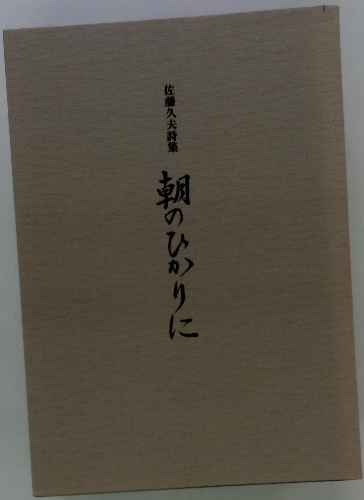 佐藤久夫詩集
朝のひかりに